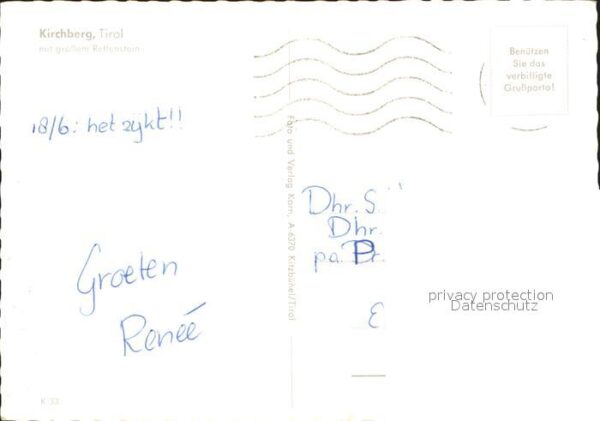 Kirchberg, Tirol
mit großem Rettenstein
Benützen
Sie das
verbilligte
Grußporto!
18/6: het zykt!!
Groeten
Reneé
Foto und Verlag Karn, A 6370 Kitzbühel/Tirol
Dhr. S.
Dhr.
pa. Pr.
E
privacy protection
Datenschutz
K 33